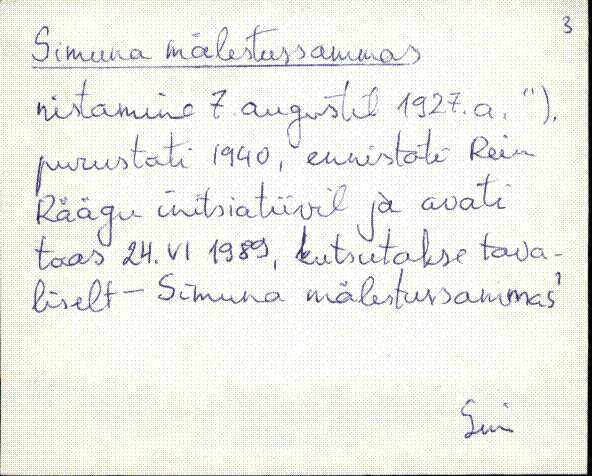 3
Simuna mälestussammas
nistamine 7. augustil 1927. a. "),
purustati 1940, ennistati Rein
Räägu initsiatiivil ja avati
taas 24. VI 1989, kutsutakse tava-
liselt - Simuna mälestussammas'